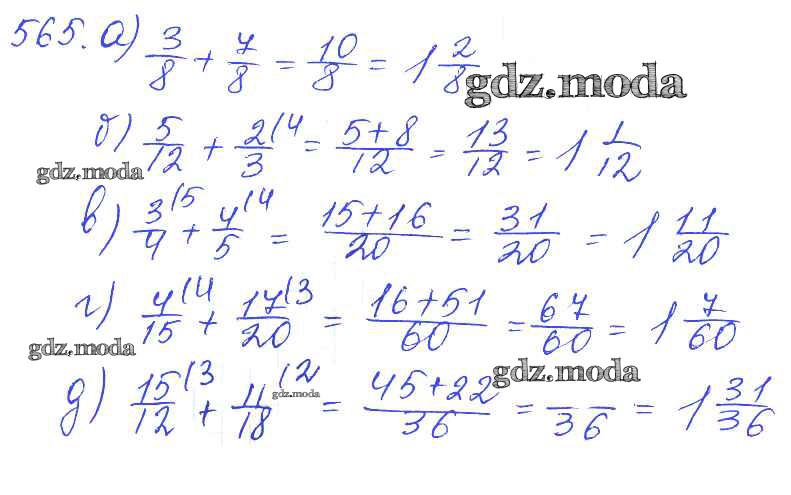 565. а) 3/8 + 7/8 = 10/8 = 1 2/8
gdz.moda
б) 5/12 + 2/3 (4 = 5+8/12 = 13/12 = 1 1/12
gdz.moda
в) 3/4 (5 + 4/5 (4 = 15+16/20 = 31/20 = 1 11/20
г) 4/15 (4 + 17/20 (3 = 16+51/60 = 67/60 = 1 7/60
gdz.moda
gdz.moda
д) 15/12 (3 + 11/18 (2 = 45+22/36 = /36 = 1 31/36
gdz.moda